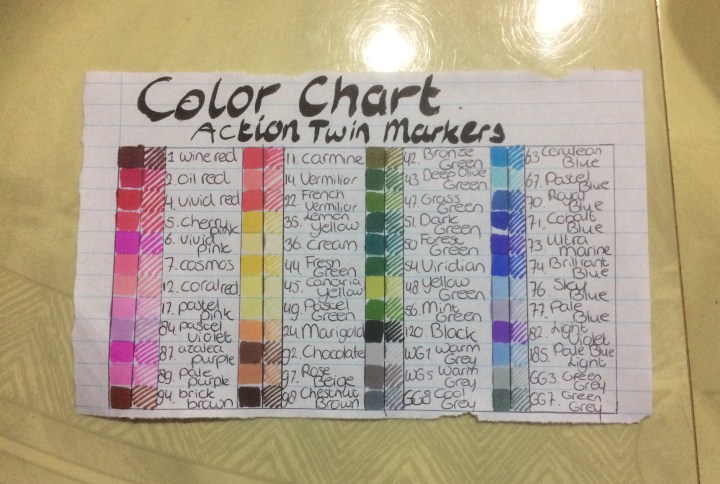 Color Chart
Action Twin Markers
1 wine red
2. oil red
4. vivid red
5. cherry pink
6. vivid pink
7. cosmos
12. coral red
17. pastel pink
84 pastel violet.
87. azalea purple
89. pale purple
94. brick brown
11. Carmine
14. Vermilior
22. French Vermilior
35. Lemon yellow
36. Cream
44. Fresh Green
45. Canaria Yellow
49. Pastel Green
24. Marigold
92. Chocolate
97. Rose Beige
98. Chestnut Brown
42. Bronze Green
43. Deep Olive Green
47. Grass Green
51. Dark Green
50. Forest Green
54. Viridian
48. Yellow Green
56. Mint Green
120. Black
WG1 Warm Grey
WG5 Warm Grey
GG8 Cool Grey
63. Cerulean Blue
67. Pastel Blue
70. Royal Blue
71. Cobalt Blue
73. Ultra marine
74. Brilliant Blue
76. Sky Blue
77. Pale Blue
82. Light Violet
185. Pale Blue Light
GG3. Green Grey
GG7. Green Grey